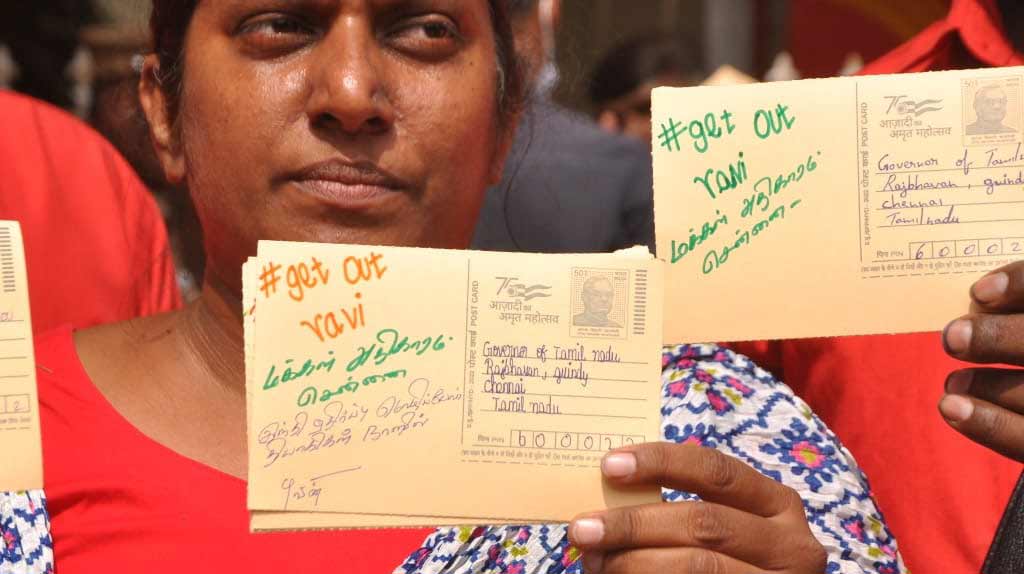 #get out
ravi
மக்கள் அதிகாரம்
சென்னை
POST CARD
75
आज़ादी का
अमृत महोत्सव
Governor of Tamil nadu
Rajbhavan, guindy
chennai
Tamil nadu
पिन PIN 600022
#get out
ravi
மக்கள் அதிகாரம்
சென்னை
पोस्ट कार्ड POST CARD
75
आज़ादी का
अमृत महोत्सव
Governor of Tamil
Rajbhavan, guind
chennai
Tamil nadu
पिन PIN 6000
2